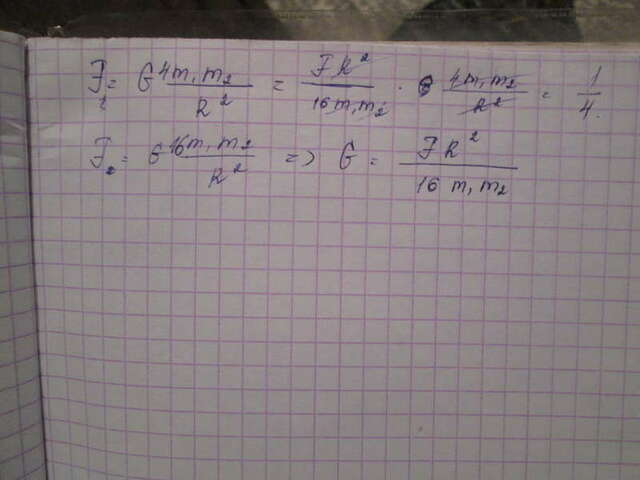 F₁ = G 4m₁m₂/R² = FR²/16m₁m₂ · G 4m₁m₂/R² = 1/4.
F₂ = G 16m₁m₂/R² => G = FR²/16 m₁m₂